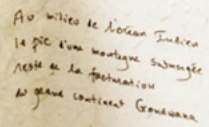 Au milieu de l'océan Indien
le pic d'une montagne submergée
reste de la facturation
du grand continent Gondwana